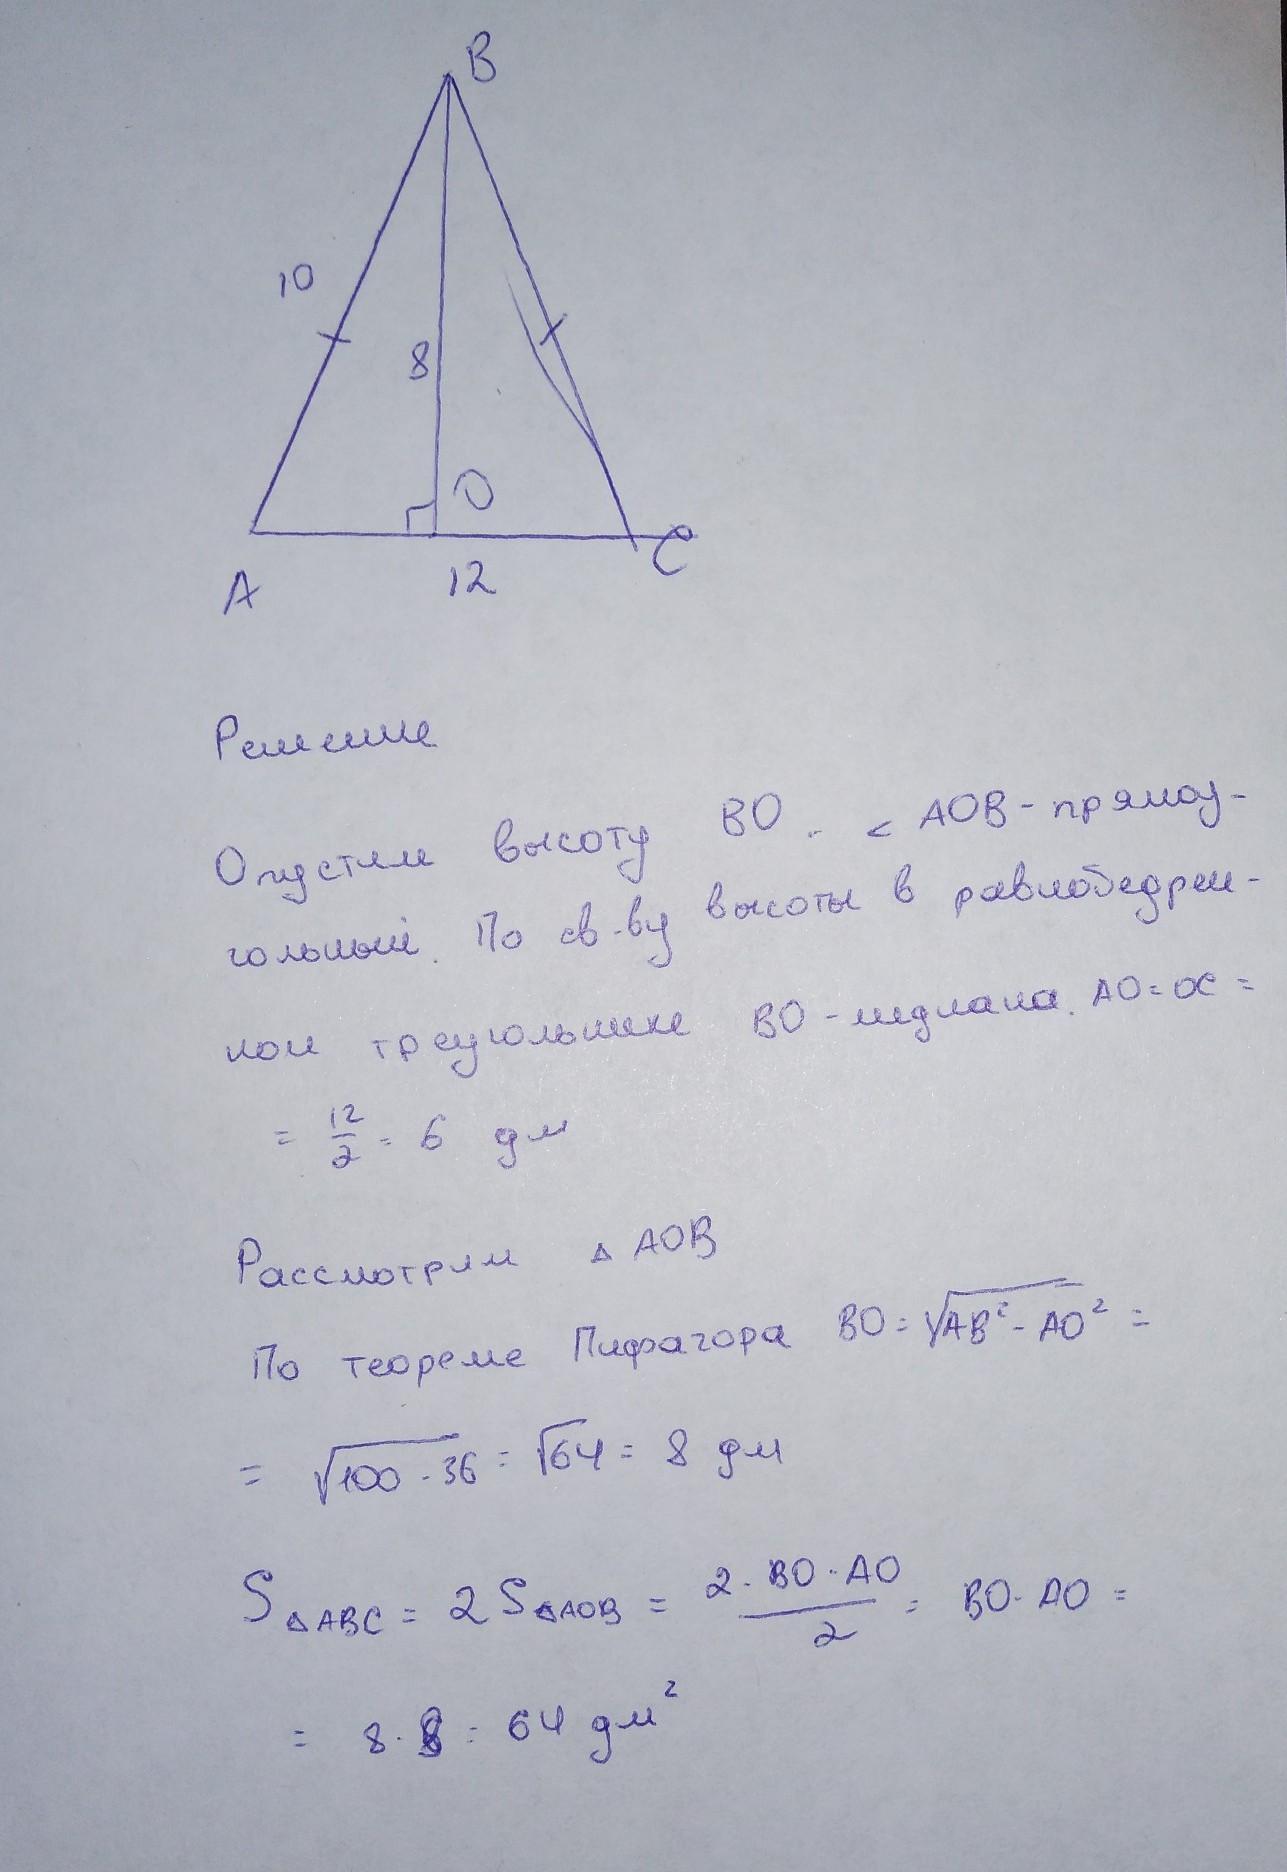 B
10
8
O
A
12
C
Решение
Опустим высоту BO. < AOB - прямоу-
гольный. По св-ву высоты в равнобедрен-
ном треугольнике BO - медиана. AO = OC =
= 12/2 = 6 дм
Рассмотрим △ AOB
По теореме Пифагора BO = √AB² - AO² =
= √100 - 36 = √64 = 8 дм
S△ABC = 2 S△AOB = 2 · BO · AO / 2 = BO · AO =
= 8 · 8 = 64 дм²